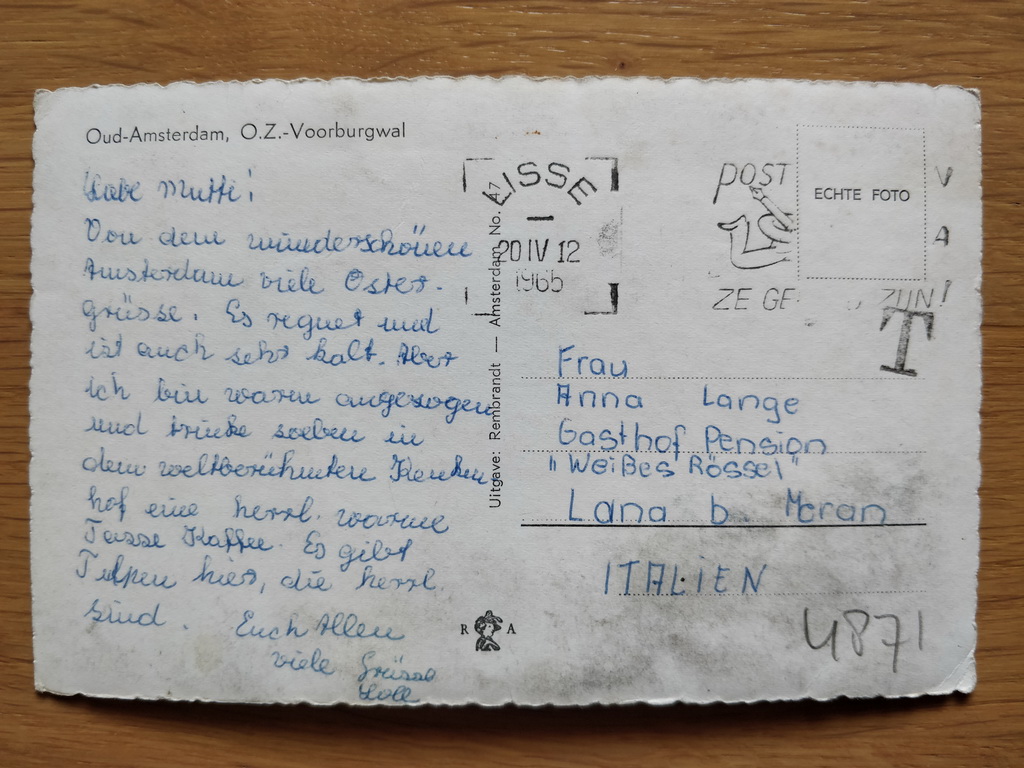 Oud-Amsterdam, O.Z.-Voorburgwal
Liebe Mutti!
Von dem wunderschönen
Amsterdam viele Oster-
grüsse. Es regnet und
ist auch sehr kalt. Aber
ich bin warm angezogen
und trinke soeben in
dem weltberühmten Keuken
hof eine herrl. warme
Tasse Kaffee. Es gibt
Tulpen hier, die herrl.
sind. Euch Allen
viele Grüsse
Uitgave: Rembrandt — Amsterdam No. 47
R A
LISSE
20 IV 12
1965
POST
ZE GE ZIJN!
ECHTE FOTO
V
A
T
Frau
Anna Lange
Gasthof Pension
"Weißes Rössel"
Lana b. Meran
ITALIEN
4871